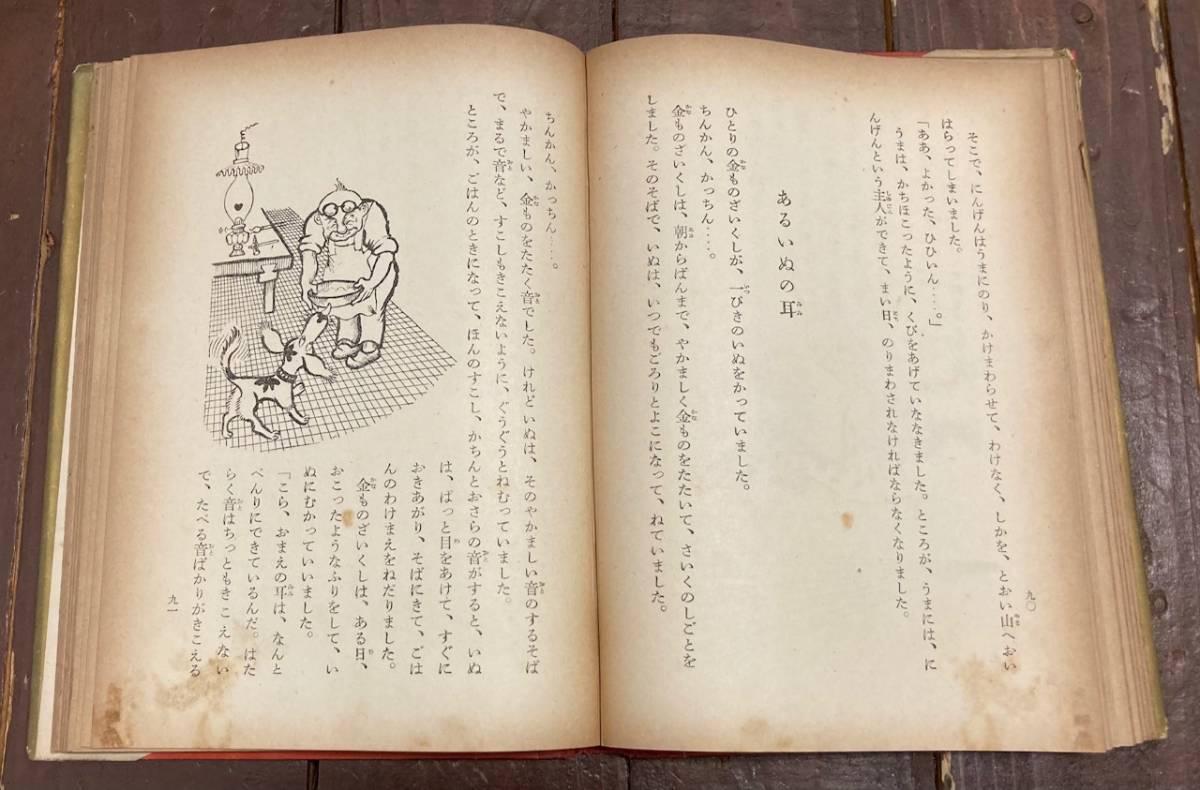 そこで、にんげんはうまにのり、かけまわらせて、わけなく、しかを、とおい山へおい
はらってしまいました。
「ああ、よかった、ひひいん‥‥。」
うまは、かちほこったように、くびをあげていななきました。ところが、うまには、に
んげんという主人ができて、まい日、のりまわされなければならなくなりました。
九〇
あるいぬの耳
ひとりの金ものざいくしが、一ぴきのいぬをかっていました。
ちんかん、かっちん‥‥。
金ものざいくしは、朝からばんまで、やかましく金ものをたたいて、さいくのしごとを
しました。そのそばで、いぬは、いつでもごろりとよこになって、ねていました。
ちんかん、かっちん‥‥。
やかましい、金ものをたたく音でした。けれどいぬは、そのやかましい音のするそば
で、まるで音など、すこしもきこえないように、ぐうぐうとねむっていました。
ところが、ごはんのときになって、ほんのすこし、かちんとおさらの音がすると、いぬ
は、ぱっと目をあけて、すぐに
おきあがり、そばにきて、ごは
んのわけまえをねだりました。
金ものざいくしは、ある日、
おこったようなふりをして、い
ぬにむかっていいました。
「こら、おまえの耳は、なんと
べんりにできているんだ。はた
らく音はちっともきこえない
で、たべる音ばかりがきこえる
九一